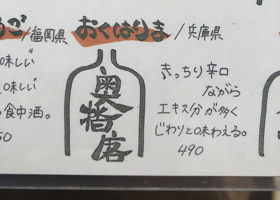 ご/福岡県
味しい
味しい
食中酒。
50
おくはりま/兵庫県
奥播磨
きっちり辛口
ながら
エキス分が多く
じわりと味わえる。
490